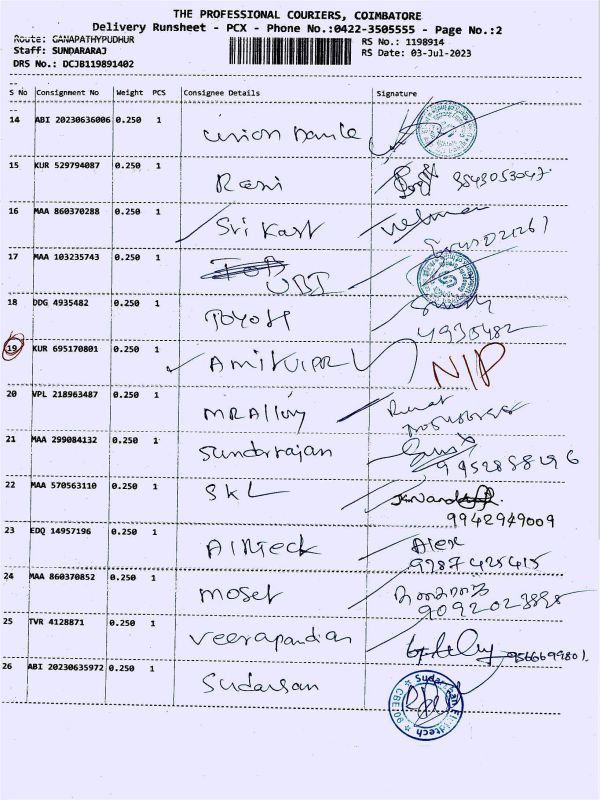 THE PROFESSIONAL COURIERS, COIMBATORE
Delivery Runsheet - PCX - Phone No.:0422-3505555 - Page No.:2
Route: GANAPATHYPUDHUR RS No.: 1198914
Staff: SUNDARARAJ RS Date: 03-Jul-2023
DRS No.: DCJB119891402
S No Consignment No Weight PCS Consignee Details Signature
14 ABI 20230636006 0.250 1 Union Bank
15 KUR 529794087 0.250 1 Rani
16 MAA 860370288 0.250 1 Sri Kast
17 MAA 103235743 0.250 1 UBI
18 DDG 4935482 0.250 1 TOYOTA
4935482
19 KUR 695170801 0.250 1 AMITUIPR N/P
20 VPL 218963487 0.250 1 MRAlloy
21 MAA 299084132 0.250 1 Sundarrajan
22 MAA 570563110 0.250 1 SKL
9942949009
23 EDQ 14957196 0.250 1 AIRTECK Alex
9787425415
24 MAA 860370852 0.250 1 MOSET
25 TVR 4128871 0.250 1 Veerapandian
26 ABI 20230635972 0.250 1 Sudarsan